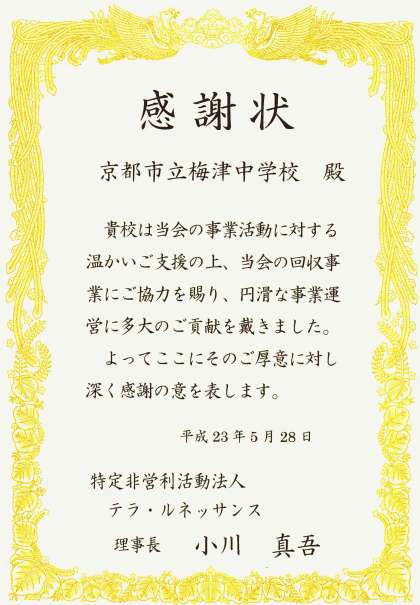 感謝状
京都市立梅津中学校　殿
貴校は当会の事業活動に対する
温かいご支援の上、当会の回収事
業にご協力を賜り、円滑な事業運
営に多大のご貢献を戴きました。
よってここにそのご厚意に対し
深く感謝の意を表します。
平成 23 年 5 月 28 日
特定非営利活動法人
テラ・ルネッサンス
理事長　小川　真吾